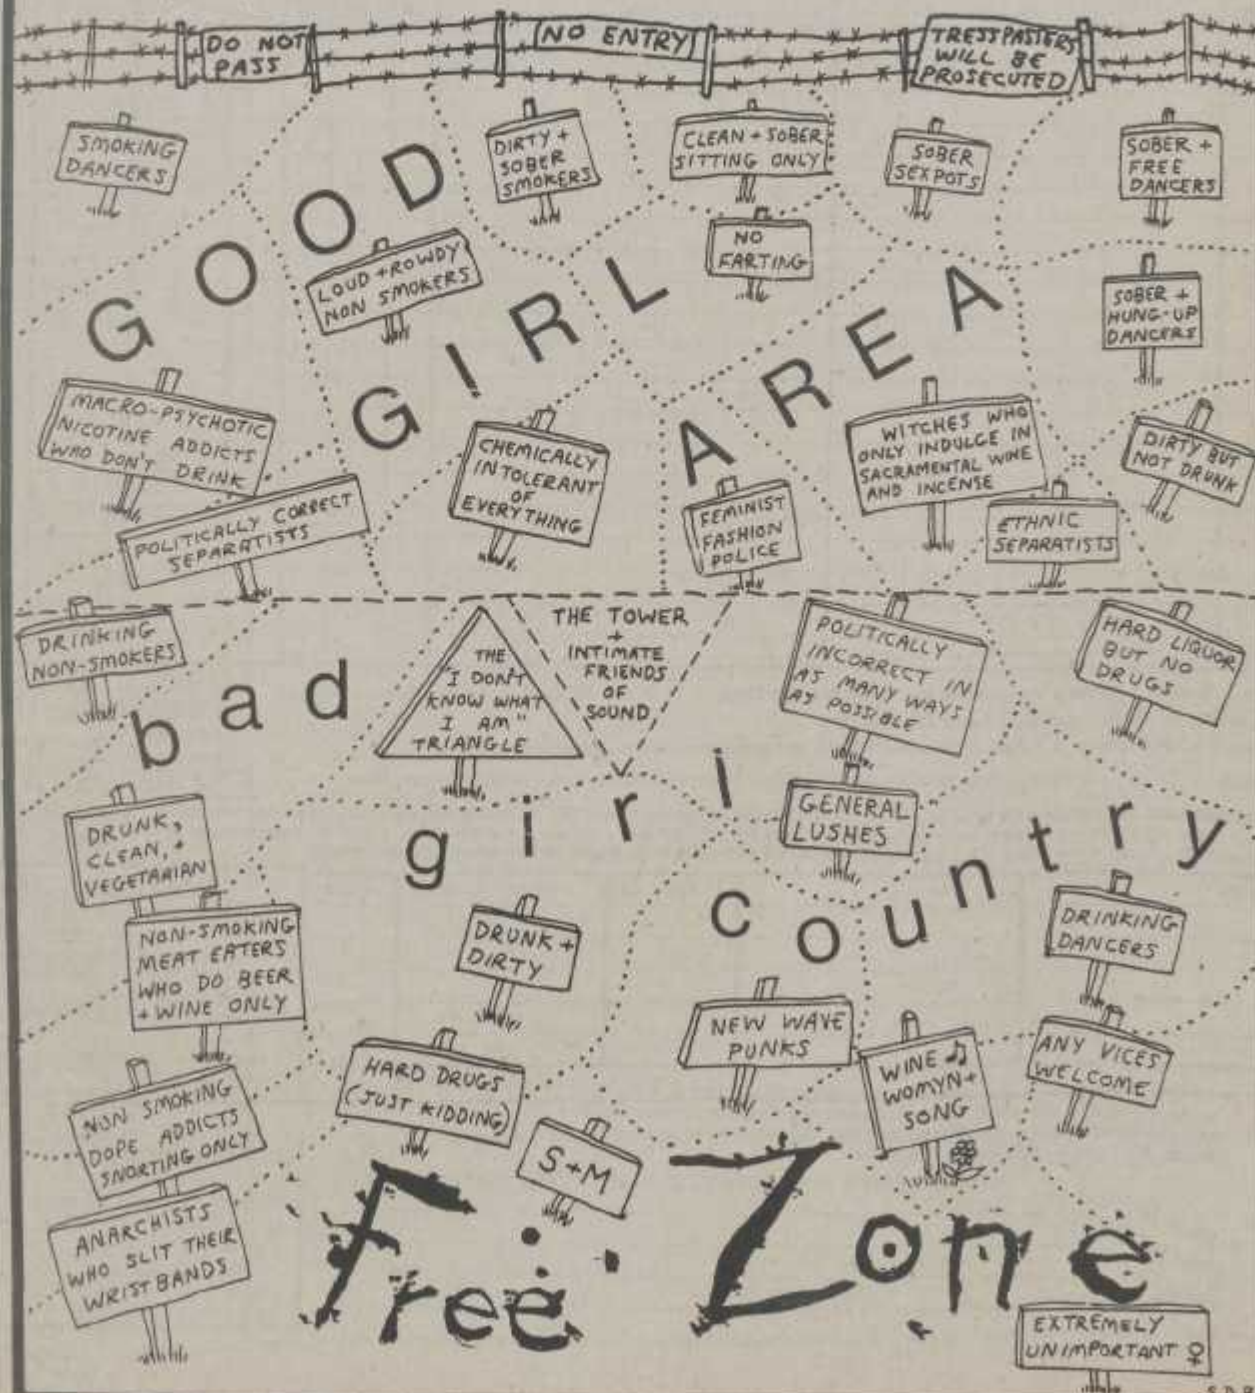 DO NOT
PASS
NO ENTRY
TRESSPASTERS
WILL BE
PROSECUTED
SMOKING
DANCERS
DIRTY +
SOBER
SMOKERS
CLEAN + SOBER
SITTING ONLY
SOBER
SEXPOTS
SOBER +
FREE
DANCERS
GOOD
GIRL
AREA
LOUD + ROWDY
NON SMOKERS
NO
FARTING
SOBER +
HUNG-UP
DANCERS
MACRO-PSYCHOTIC
NICOTINE ADDICTS
WHO DON'T DRINK
CHEMICALLY
INTOLERANT
OF
EVERYTHING
WITCHES WHO
ONLY INDULGE IN
SACRAMENTAL WINE
AND INCENSE
DIRTY BUT
NOT DRUNK
POLITICALLY CORRECT
SEPARATISTS
FEMINIST
FASHION
POLICE
ETHNIC
SEPARATISTS
DRINKING
NON-SMOKERS
THE
"I DON'T
KNOW WHAT
I AM"
TRIANGLE
THE TOWER
+
INTIMATE
FRIENDS
OF
SOUND
POLITICALLY
INCORRECT IN
AS MANY WAYS
AS POSSIBLE
HARD LIQUOR
BUT NO
DRUGS
bad
girl
country
DRUNK,
CLEAN, +
VEGETARIAN
GENERAL
LUSHES
NON-SMOKING
MEAT EATERS
WHO DO BEER
+ WINE ONLY
DRUNK +
DIRTY
DRINKING
DANCERS
NEW WAVE
PUNKS
WINE ♫
WOMYN +
SONG
ANY VICES
WELCOME
NON SMOKING
DOPE ADDICTS
SNORTING ONLY
HARD DRUGS
(JUST KIDDING)
S+M
ANARCHISTS
WHO SLIT THEIR
WRISTBANDS
Free Zone
EXTREMELY
UNIMPORTANT ♀